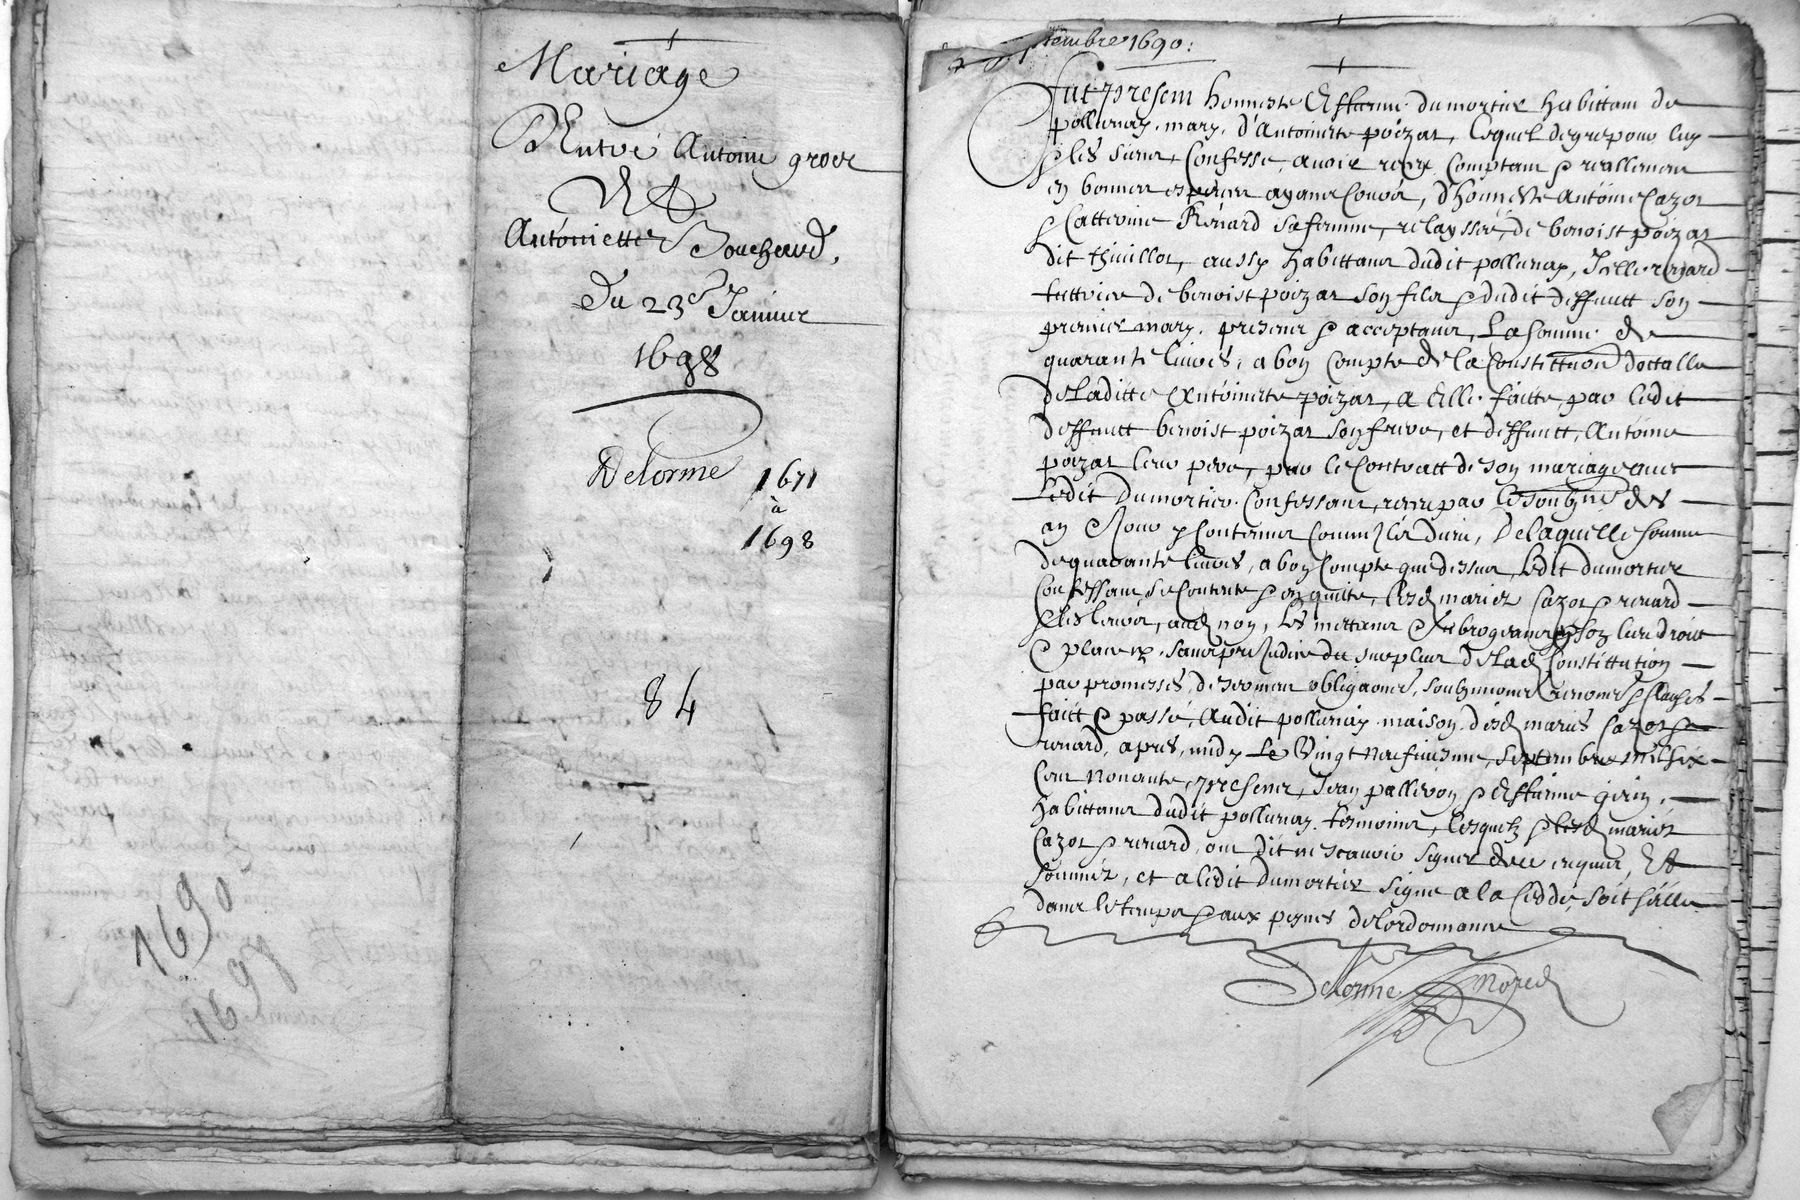 Mariage
D'Entre Antoine grove
Et
Antoinette Bouchard,
Du 23e Janvier
1698
Delorme 1671
à
1698
84
1690
1697
tembre 1690:
fut present honneste Estienne dumortier habittant de
pollionay, mary d'Antoinette poizat, lequel de gre pour luy
& les siens, Confesse avoir receu Comptant & reallement
en bonnes especes ayant Cours, d'honneste Antoine Cazot
& Catterine Renard sa femme, relayssée de benoist poizat
dit thivillot, aussy habittans dudit pollionay, Icelle renard
tuttrice de benoist poizat son fils & dudit deffunct son
premier mary, presens & acceptans, La somme de
quarante livres, a bon Compte de la Constittution dottalle
de Laditte Antoinette poizat, a Elle faitte par ledit
deffunct benoist poizat son frere, et deffunct Antoine
poizat leur pere, par le Contract de son mariage avec
Ledit Dumortier Confessant, receu par le soubzsigné des
an & Jour y Contenus, De laquelle somme
de quarante livres, a bon Compte que dessus, Ledit dumortier
Confessant, se Contente & en quitte, lesd mariez Cazot & renard
& les leurs, aud nom, Les mettant & subrogeant en son lieu droict
& place, sans prejudice du surplus de Lad Constittution
par promesses, de serment obligaons, soubzmissions renonons & Clauses
faict & passé, Audit pollionay maison desd mariés Cazot &
renard, apres midy Le Vingt neufiesme, septembre mil six
Cent Nonante, presens, Jean pallevon & Estienne girin,
habittans dudit pollionay tesmoins, lesquelz & lesd mariez
Cazot & renard, ont dit ne scavoir signer de ce enquis, Et
sommez, et a ledit dumortier signe a la Cedde, soit scellé
dans le temps & aux peynes de lordonnance
Delorme Nored